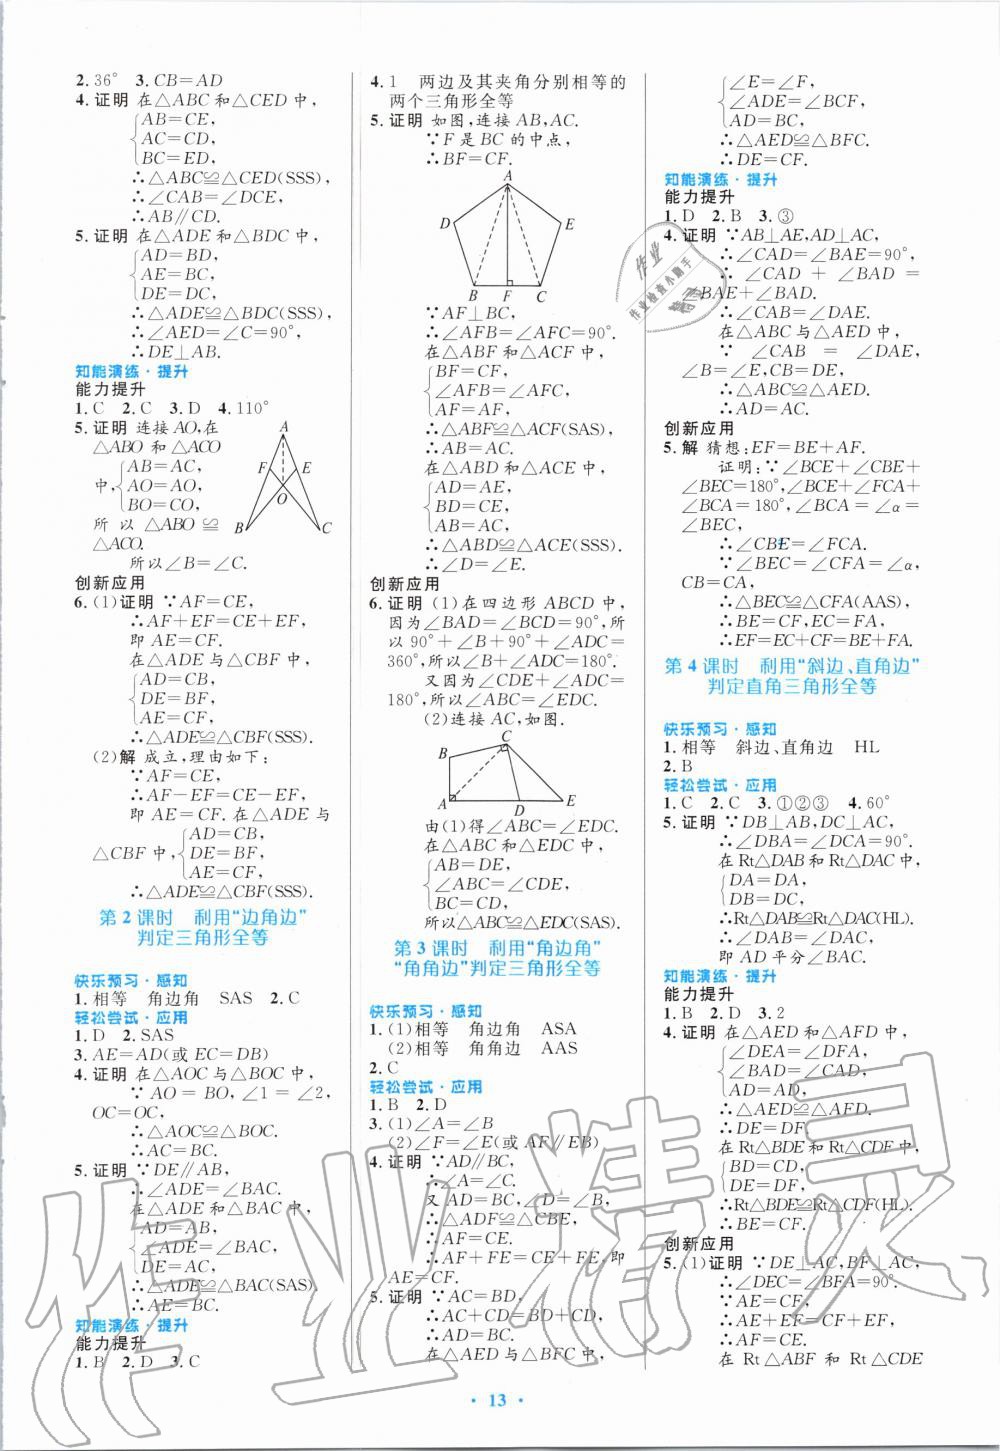 2.36° 3.CB=AD
4.证明 在△ABC 和△CED 中，
AB=CE,
AC=CD,
BC=ED,
∴△ABC≌△CED(SSS),
∴∠CAB=∠DCE,
∴AB∥CD.
5.证明 在△ADE 和△BDC 中，
AD=BD,
AE=BC,
DE=DC,
∴△ADE≌△BDC(SSS),
∴∠AED=∠C=90°,
∴DE⊥AB.
知能演练·提升
能力提升
1.C 2.C 3.D 4.110°
5.证明 连接AO,在
△ABO 和△ACO
中，
AB=AC,
AO=AO,
BO=CO,
所以△ABO≌
△ACO.
所以∠B=∠C.
A
F
E
O
B
C
创新应用
6.(1)证明 ∵AF=CE,
∴AF+EF=CE+EF,
即 AE=CF.
在△ADE 与△CBF 中，
AD=CB,
DE=BF,
AE=CF,
∴△ADE≌△CBF(SSS).
(2)解 成立，理由如下：
∵AF=CE,
∴AF−EF=CE−EF,
即 AE=CF.在△ADE 与
△CBF 中，
AD=CB,
DE=BF,
AE=CF,
∴△ADE≌△CBF(SSS).
第2课时 利用“边角边”
判定三角形全等
快乐预习·感知
1.相等 角边角 SAS 2.C
轻松尝试·应用
1.D 2.SAS
3.AE=AD(或 EC=DB)
4.证明 在△AOC 与△BOC 中，
∵AO=BO,∠1=∠2,
OC=OC,
∴△AOC≌△BOC.
∴AC=BC.
5.证明 ∵DE∥AB,
∴∠ADE=∠BAC.
在△ADE 和△BAC 中，
AD=AB,
∠ADE=∠BAC,
DE=AC,
∴△ADE≌△BAC(SAS).
∴AE=BC.
知能演练·提升
能力提升
1.B 2.D 3.C
4.1 两边及其夹角分别相等的
两个三角形全等
5.证明 如图，连接 AB,AC.
∵F 是 BC 的中点，
∴BF=CF.
A
D
E
B F C
∵AF⊥BC,
∴∠AFB=∠AFC=90°.
在△ABF 和△ACF 中，
BF=CF,
∠AFB=∠AFC,
AF=AF,
∴△ABF≌△ACF(SAS),
∴AB=AC.
在△ABD 和△ACE 中，
AD=AE,
BD=CE,
AB=AC,
∴△ABD≌△ACE(SSS).
∴∠D=∠E.
创新应用
6.证明 (1)在四边形 ABCD 中，
因为∠BAD=∠BCD=90°,所
以90°+∠B+90°+∠ADC=
360°,所以∠B+∠ADC=180°.
又因为∠CDE+∠ADC=
180°,所以∠B=∠EDC.
(2)连接 AC,如图.
C
B
A
D
E
由(1)得∠ABC=∠EDC.
在△ABC 和△EDC 中，
AB=DE,
∠ABC=∠CDE,
BC=CD,
所以△ABC≌△EDC(SAS).
第3课时 利用“角边角”
“角角边”判定三角形全等
快乐预习·感知
1.(1)相等 角边角 ASA
(2)相等 角角边 AAS
2.C
轻松尝试·应用
1.B 2.D
3.(1)∠A=∠B
(2)∠F=∠E(或 AF∥EB)
4.证明 ∵AD∥BC,
∴∠A=∠C.
又 AD=BC,∠D=∠B,
∴△ADF≌△CBE,
∴AF=CE.
∴AF+FE=CE+FE,即
AE=CF.
5.证明 ∵AC=BD,
∴AC+CD=BD+CD,
∴AD=BC.
在△AED 与△BFC 中，
∠E=∠F,
∠ADE=∠BCF,
AD=BC,
∴△AED≌△BFC.
∴DE=CF.
知能演练·提升
能力提升
1.D 2.B 3.③
4.证明 ∵AB⊥AE,AD⊥AC,
∴∠CAD=∠BAE=90°,
∴∠CAD+∠BAD=
∠BAE+∠BAD.
∴∠CAB=∠DAE.
在△ABC 与△AED 中，
∵∠CAB=∠DAE,
∠B=∠E,CB=DE,
∴△ABC≌△AED.
∴AD=AC.
创新应用
5.解 猜想:EF=BE+AF.
证明:∵∠BCE+∠CBE+
∠BEC=180°,∠BCE+∠FCA+
∠BCA=180°,∠BCA=∠α=
∠BEC,
∴∠CBE=∠FCA.
∵∠BEC=∠CFA=∠α,
CB=CA,
∴△BEC≌△CFA(AAS),
∴BE=CF,EC=FA,
∴EF=EC+CF=BE+FA.
第4课时 利用“斜边、直角边”
判定直角三角形全等
快乐预习·感知
1.相等 斜边、直角边 HL
2.B
轻松尝试·应用
1.C 2.C 3.①②③ 4.60°
5.证明 ∵DB⊥AB,DC⊥AC,
∴∠DBA=∠DCA=90°.
在 Rt△DAB 和 Rt△DAC 中，
DA=DA,
DB=DC,
∴Rt△DAB≌Rt△DAC(HL).
∴∠DAB=∠DAC,
即 AD 平分∠BAC.
知能演练·提升
能力提升
1.B 2.D 3.2
4.证明 在△AED 和△AFD 中，
∠DEA=∠DFA,
∠BAD=∠CAD,
AD=AD,
∴△AED≌△AFD.
∴DE=DF.
在 Rt△BDE 和 Rt△CDF 中，
BD=CD,
DE=DF,
∴Rt△BDE≌Rt△CDF(HL).
∴BE=CF.
创新应用
5.(1)证明 ∵DE⊥AC,BF⊥AC,
∴∠DEC=∠BFA=90°.
∵AE=CF,
∴AE+EF=CF+EF,
∴AF=CE.
在 Rt△ABF 和 Rt△CDE
·13·
作业
作业检查小助手
精灵
作业精灵